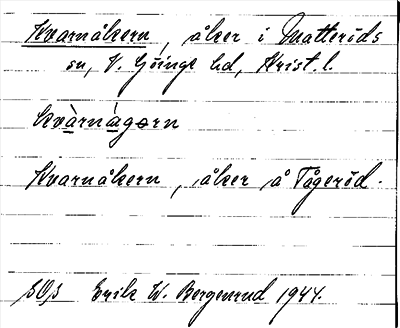 Kvarnåkern, åker i Matteröds
sn, V. Göinge hd, Krist. l.
kvàrnágørn
Kvarnåkern, åker å Tågeröd.
Erik W. Bergenrud 1944.